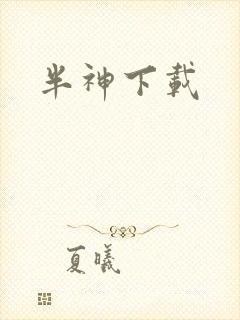 半神下载
夏曦